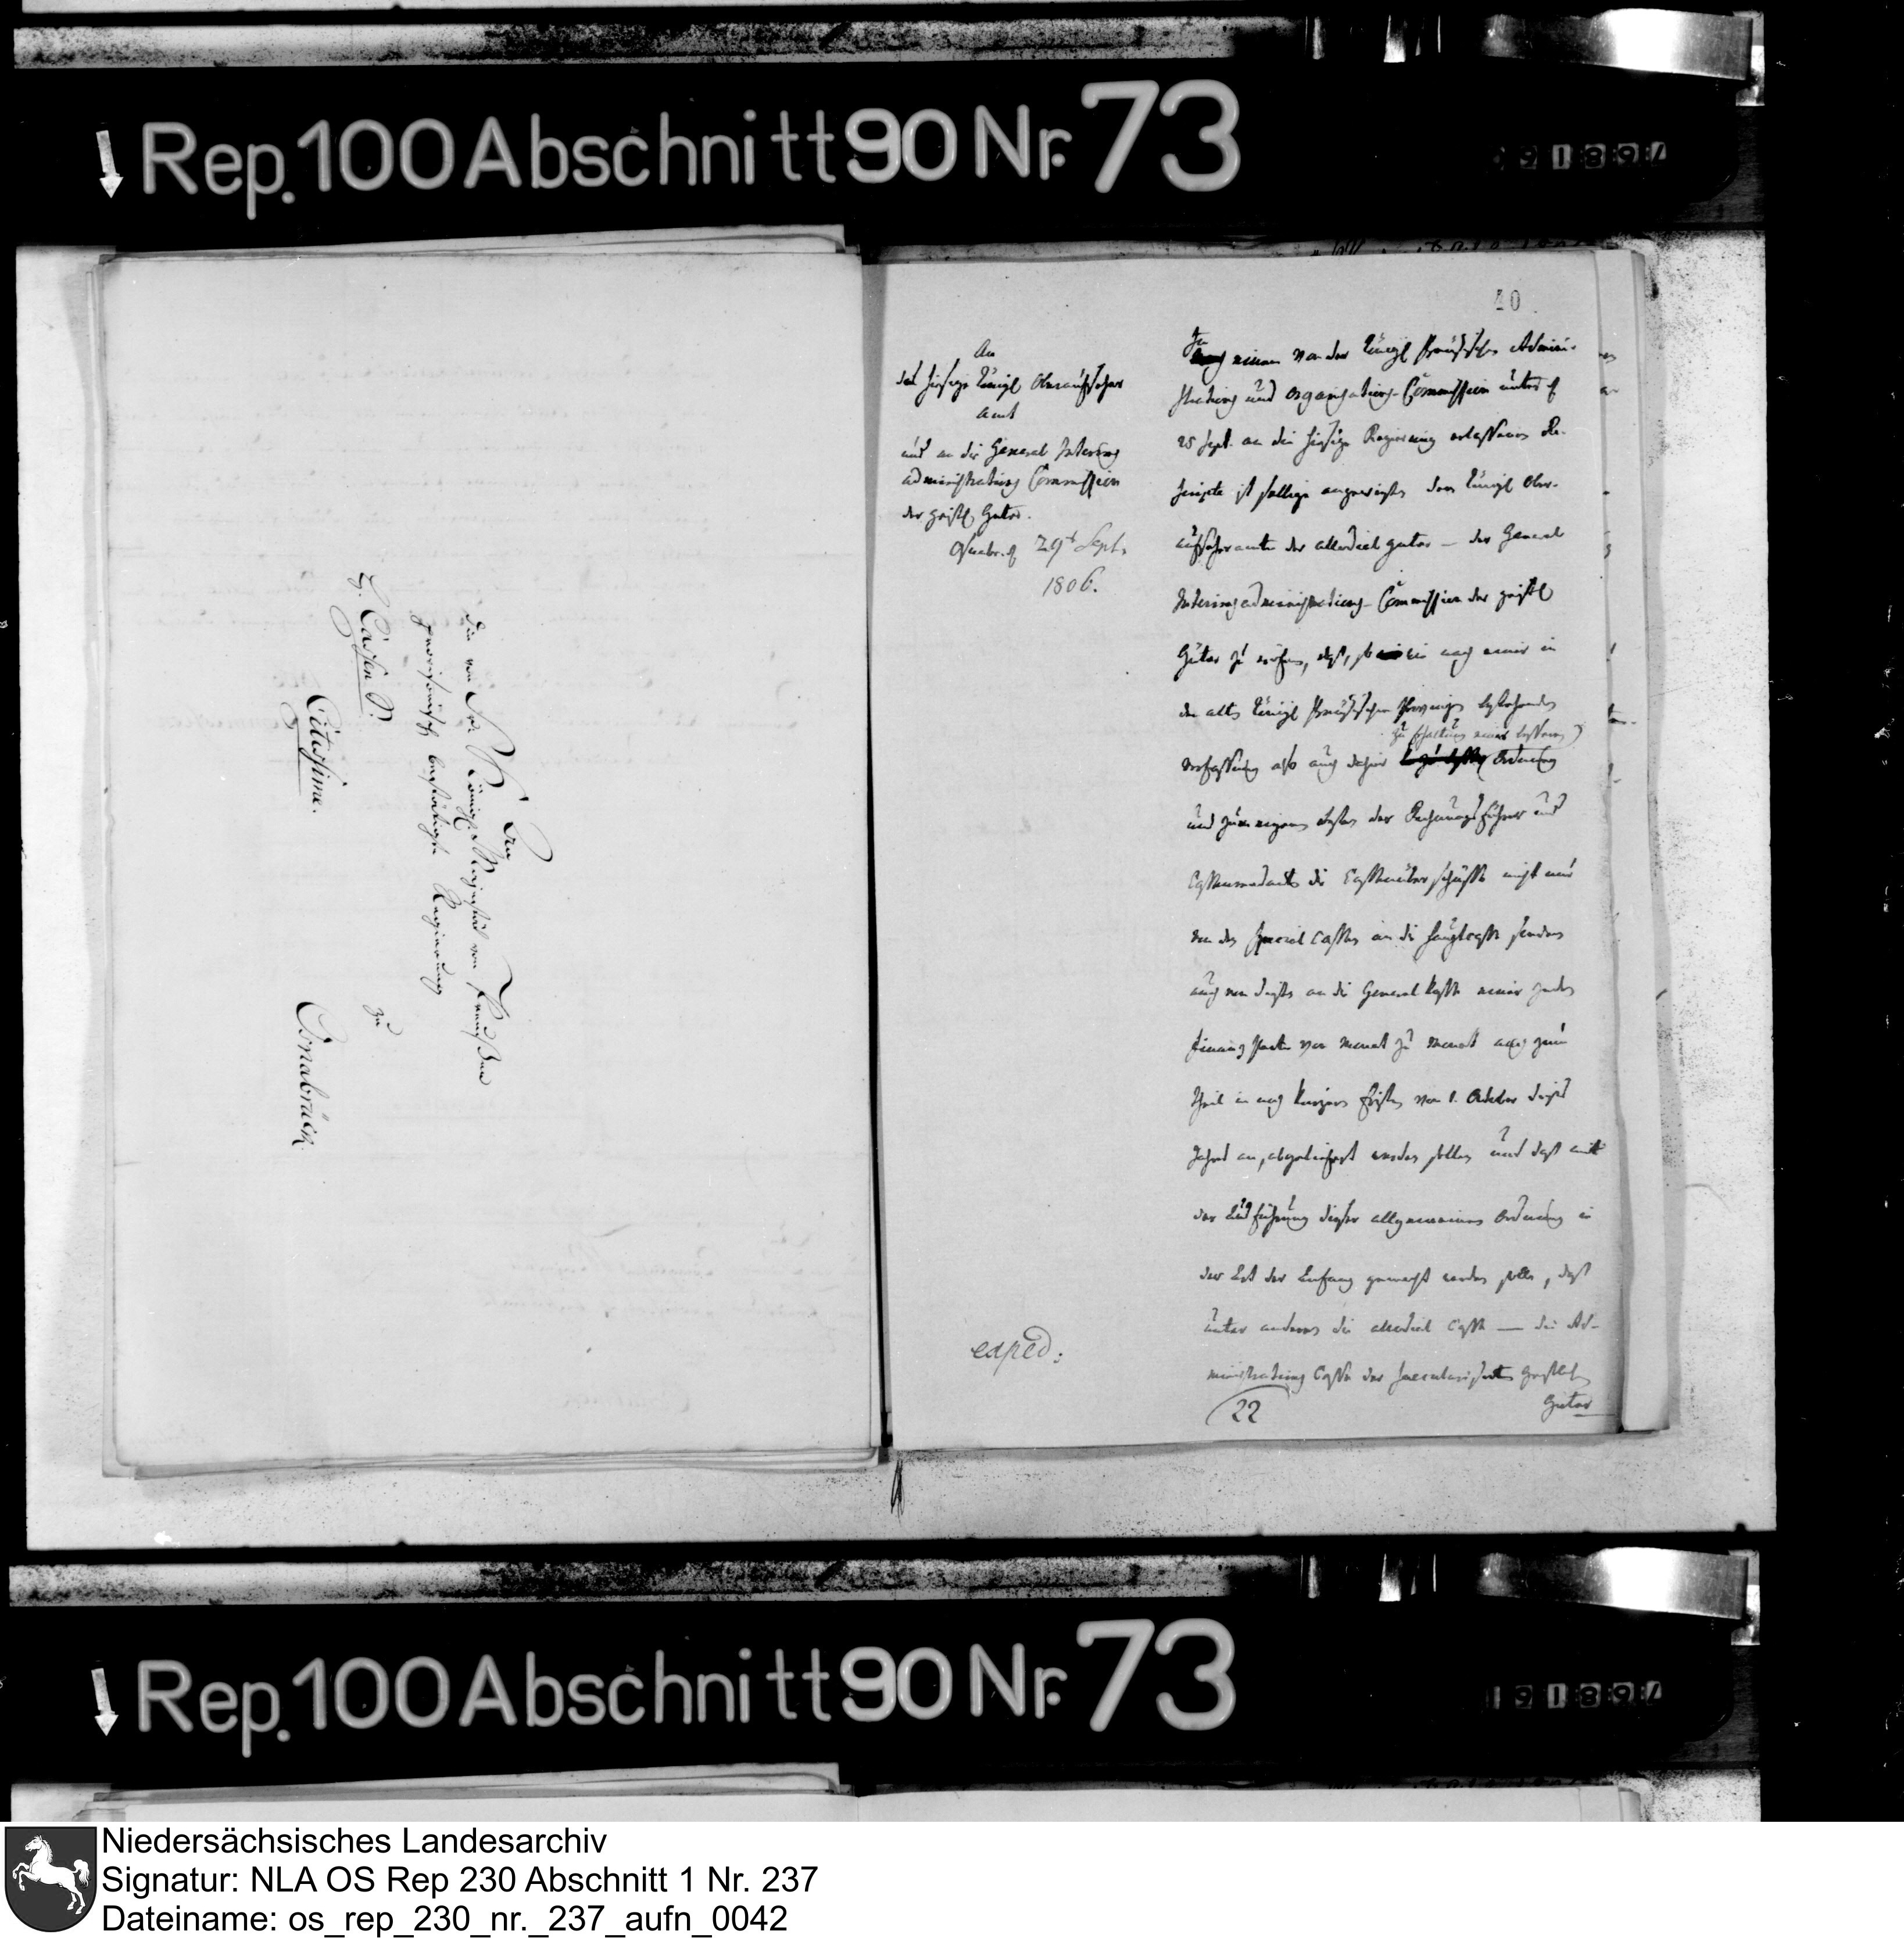 Rep. 100 Abschnitt 90 Nr. 73
An
die von Sr. Königl. Majestät von Preußen
provisorisch bestätigte Regierung
zu
H. Cassen S. Osnabrück
Citissime.
40
An
das hiesige Königl Oberaufseher
Amt
und an die General Interims
administrations Commission
der geistl. Güter.
Osnabr. d 29t Sept.
1806.
exped:
In
einem von der Königl Preußischen Admini-
strations und Organisations-Commission unterm
25 Sept. an die hiesige Regierung erlassenen Re-
scripte ist selbige angewiesen dem Königl Ober-
aufseheramte der allodial güter — der General
Interimsadministrations-Commission der geistl
Güter zu eröfnen, daß, so wie nach einer in
den alten Königl Preußischen Provinzen bestehenden
zu Erhaltung einer bessern
Verfassung also auch daher Ordnung
und zum eigenen besten der Rechnungsführer und
Cassenrendanten die Cassenüberschüsse nicht nur
von den Special Cassen an die Hauptcasse sondern
auch von dieser an die General Casse einer jeden
Finanz Partie von Monat zu Monat auch zum
Theil in noch kürzern Fristen vom 1. October dieses
Jahrs an, abgeliefert werden sollen und daß mit
der Einführung dieser allgemeinen Ordnung in
der Art der Anfang gemacht werden solle, daß
unter andern die allodial Casse — die Ad-
ministrations Casse der saecularisirten geistlichen
22
Güter
Rep. 100 Abschnitt 90 Nr. 73
Niedersächsisches Landesarchiv
Signatur: NLA OS Rep 230 Abschnitt 1 Nr. 237
Dateiname: os_rep_230_nr._237_aufn_0042